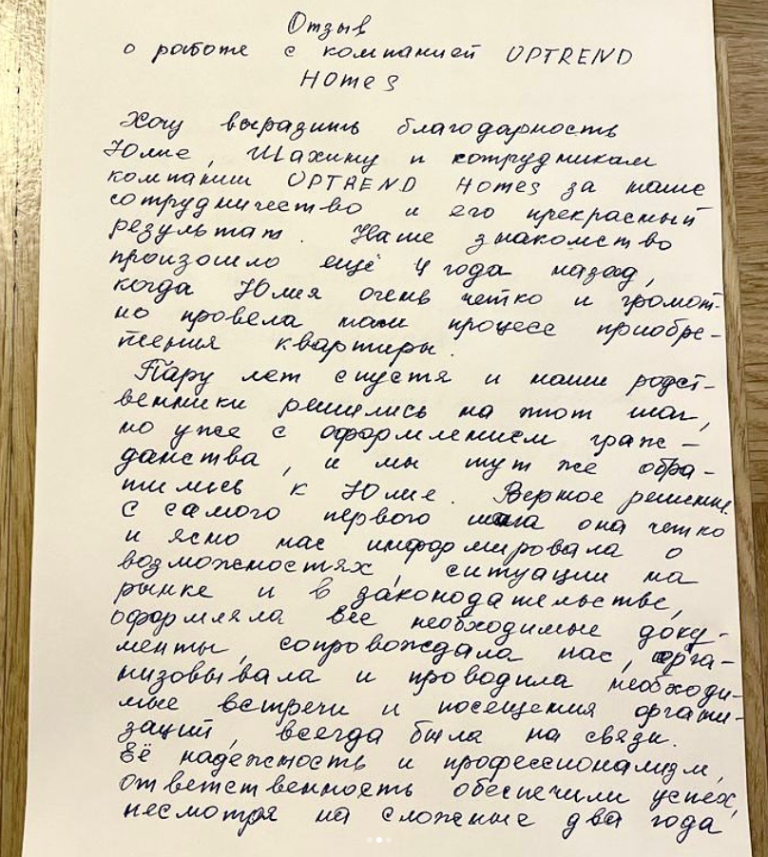 Отзыв
о работе с компанией UPTREND
Homes
Хочу выразить благодарность
Юлие, Шахину и сотрудникам
компании UPTREND Homes за наше
сотрудничество и его прекрасный
результат. Наше знакомство
произошло ещё 4 года назад,
когда Юлия очень четко и грамот-
но провела нам процесс приобре-
тения квартиры.
Пару лет спустя и наши родст-
венники решились на этот шаг,
но уже с оформлением граж-
данства, и мы тут же обра-
тились к Юлие. Верное решение
с самого первого шага она четко
и ясно нас информировала о
возможностях, ситуации на
рынке и в законодательстве,
оформляла все необходимые доку-
менты, сопровождала нас, орга-
низовывала и проводила необходи-
мые встречи и посещения органи-
заций, всегда была на связи.
Её надежность и профессионализм,
ответственность обеспечили успех,
несмотря на сложные два года